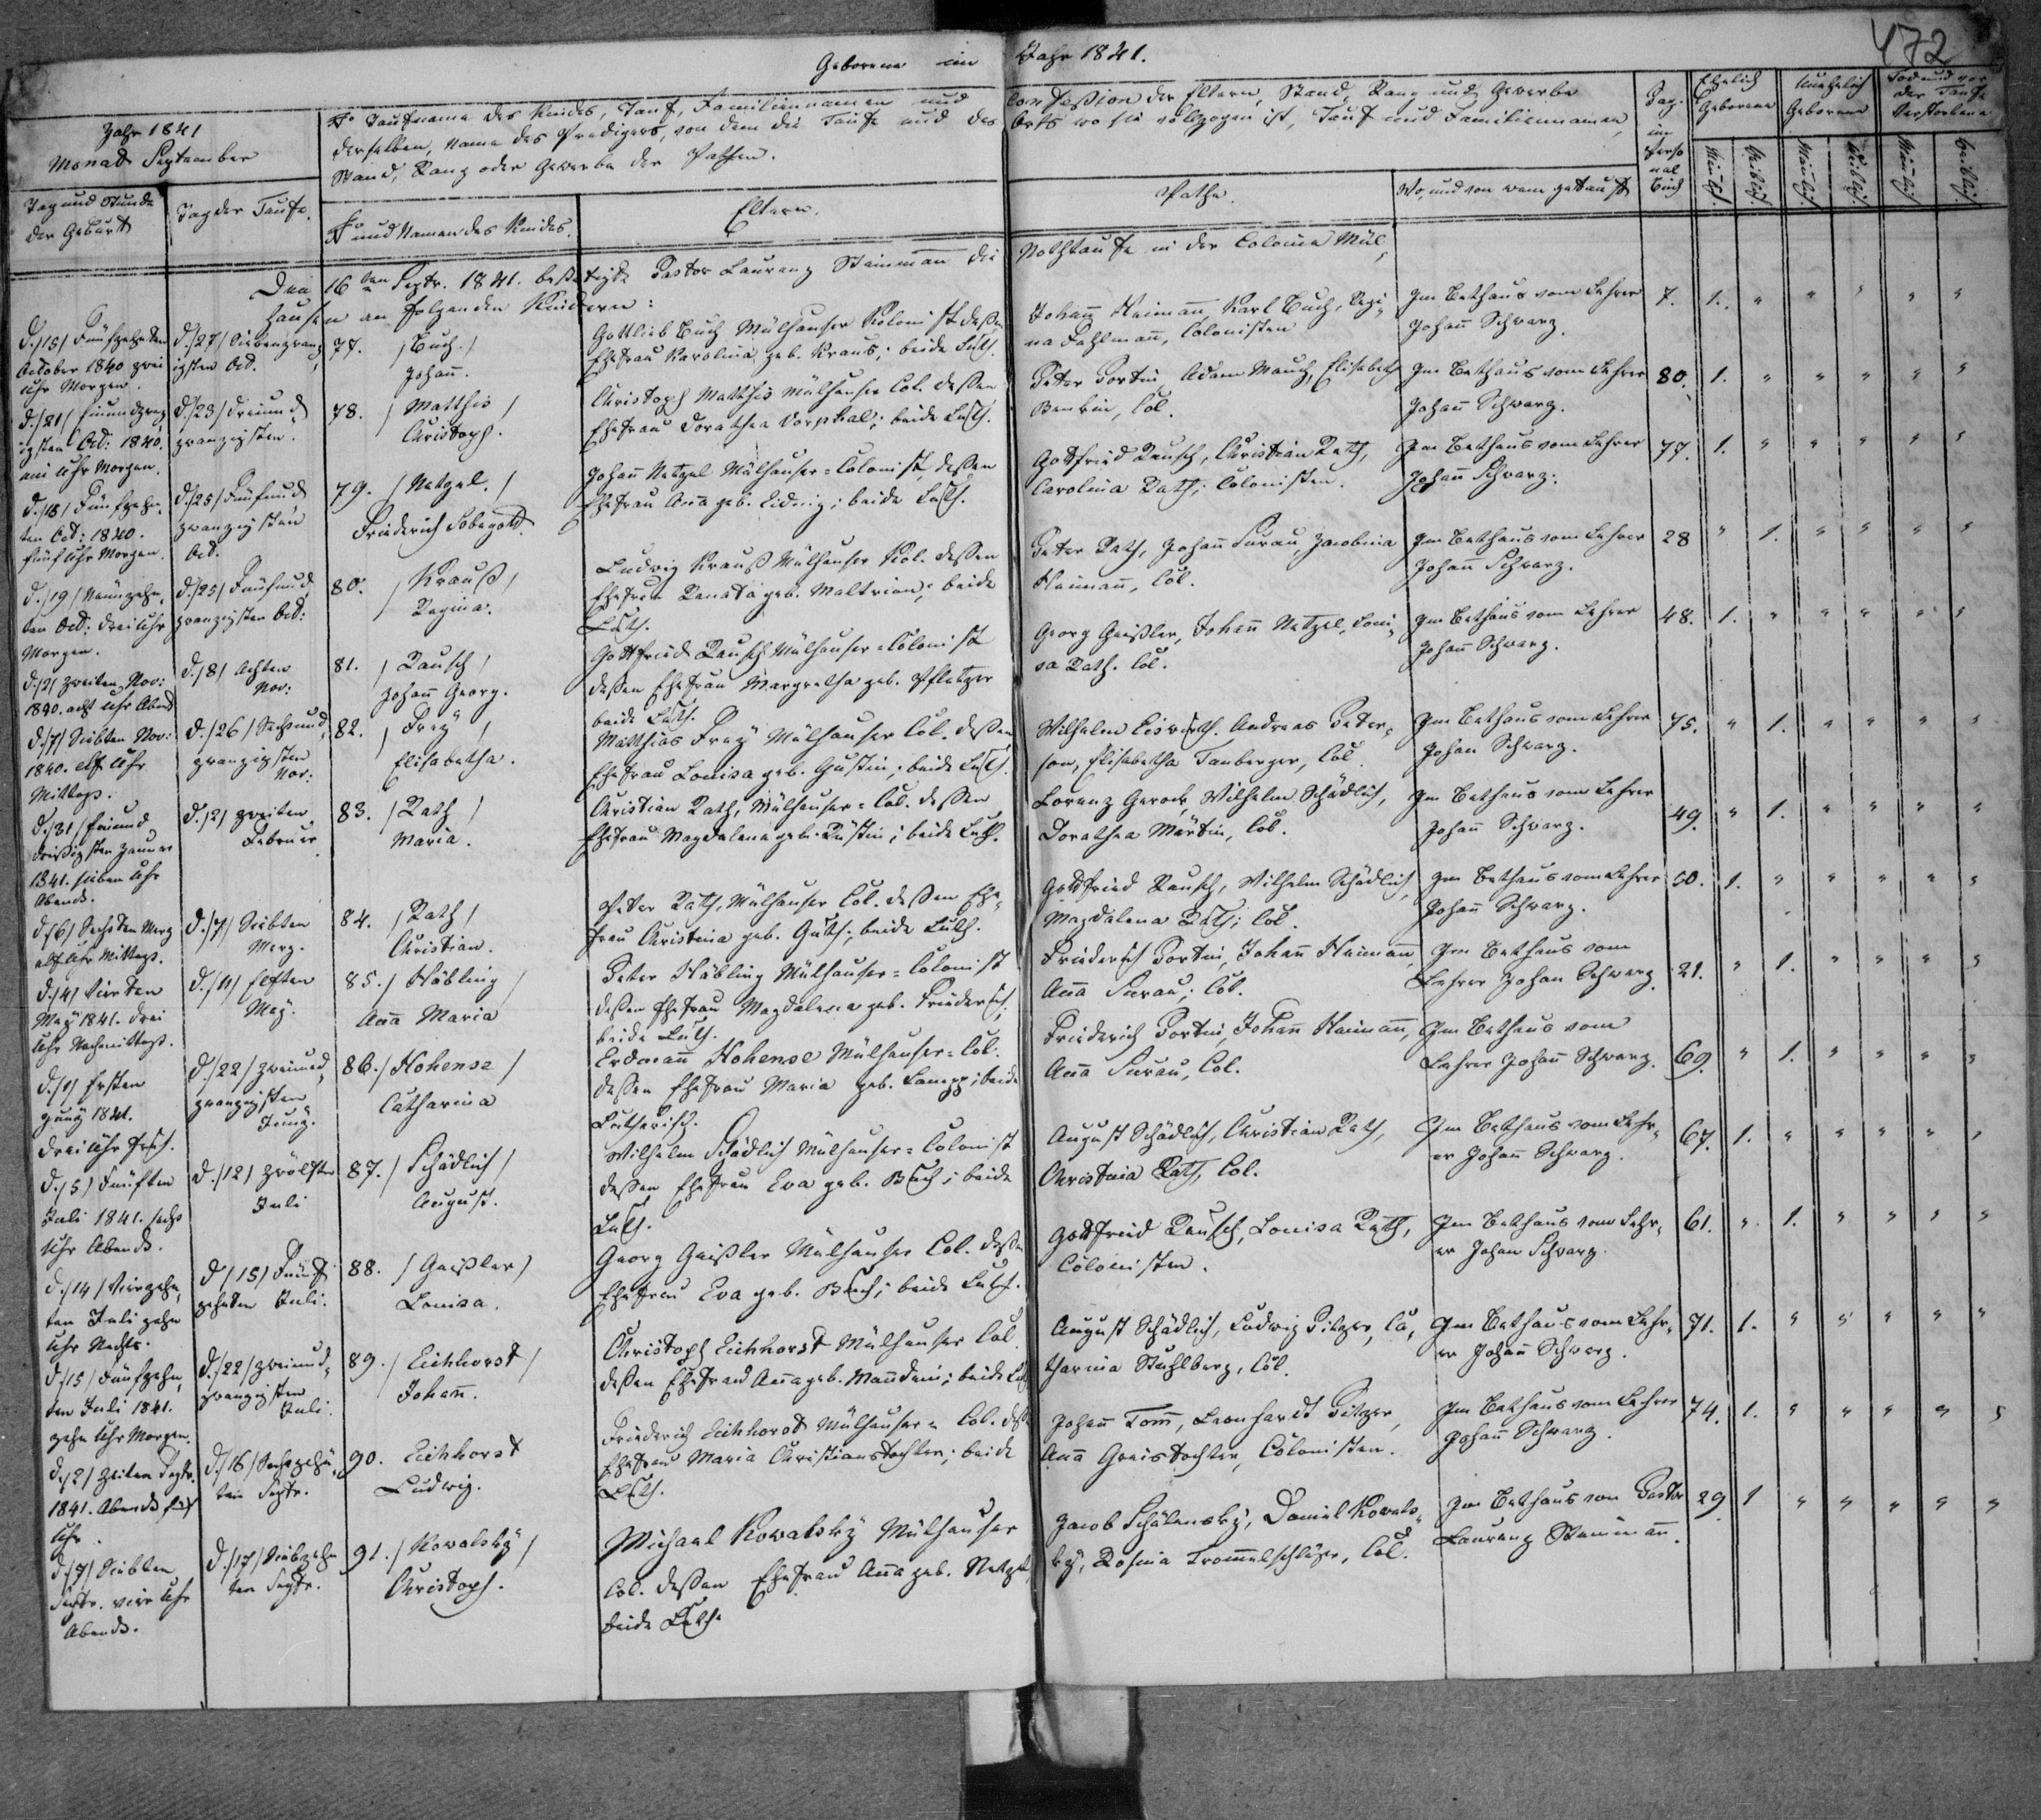 472
Geborene im Jahr 1841.
Jahr 1841
Monat September
No Taufname des Kindes, Tauf, Familiennamen und Confession der Eltern, Stand, Rang und Gewerbe
derselben, Name des Predigers, von dem die Taufe und des Orts wo sie vollzogen ist, Tauf und Familiennamen,
Stand, Rang oder Gewerbe der Pathen.
Pag. im Personal Buch
Ehelich Geborene
Unehelich Geborene
Todt und vor der Taufe Verstorbene
Tag und Stunde der Geburt
Tag der Taufe.
No und Namen des Kindes.
Eltern.
Pathe.
Wo, und von wem getauft
Männlich.
Weiblich.
Männlich.
Weiblich.
Männlich.
Weiblich.
Den 16ten Septr. 1841. bestätigte Pastor Laurenz Steinmañ die Nothtaufe in der Colonie Mül-
hausen an folgenden Kindern:
d./15/ Fünfzehnten
October 1840 zwei
Uhr Morgen.
d./27/ Siebenzwanz-
igsten Oct.
77. /Buch./
Johañ.
Gottlieb Buch Mülhauser Kolonist deßen
Ehefrau Karolina geb. Kraus; beide Luth.
Johañ Heimañ, Karl Buch, Regi-
na Fahlmañ, Colonisten
Im Bethaus vom Lehrer
Johañ Schwarz.
7. 1. " " " " "
d./21/ Einundzwanz
igsten Oct: 1840.
ein Uhr Morgen.
d./23/ Dreiund
zwanzigsten.
78. /Matthis/
Christoph.
Christoph Matthis Mülhauser Col. deßen
Ehefrau Dorothea Dorpkal; beide Luth.
Peter Fortin, Adam Mauch, Elisabeth
Benkin, Col.
Im Bethaus vom Lehrer
Johañ Schwarz.
80. 1. " " " " "
d./18/ Fünfzehn-
ten Oct: 1840.
fünf Uhr Morgen.
d./25/ Fünfund
zwanzigsten
Oct.
79. /Netzel./
Friederich Lobegott
Johañ Netzel Mülhauser-Colonist, deßen
Ehefrau Aña geb. Liedig; beide Luth.
Gottfried Rausch, Christian Rath,
Carolina Rath; Colonisten.
Im Bethaus vom Lehrer
Johañ Schwarz.
77. 1. " " " " "
d./19/ Neunzehn-
ten Oct: drei Uhr
Morgen.
d./25/ Fünfund
zwanzigsten Oct:
80. /Krauß/
Regina.
Ludwig Krauß Mülhauser Kol. deßen
Ehefrau Renata geb. Maltrian; beide
Luth.
Peter Rath, Johañ Surau, Jacobina
Heimañ, Col.
Im Bethaus vom Lehrer
Johañ Schwarz.
28 " 1. " " " "
d./2/ Zweiten Nov:
1840. acht Uhr Abend
d./8/ Achten
Nov:
81. /Rausch/
Johañ Georg.
Gottfried Rausch Mülhauser-Colonist
deßen Ehefrau Margretha geb. Pfletzer
beide Luth.
Georg Geißler, Johañ Netzel, Loui-
sa Rath. Col.
Im Bethaus vom Lehrer
Johañ Schwarz.
48. 1. " " " " "
d./7/ Siebten Nov:
1840. elf Uhr
Mittags.
d./26/ Sechsund-
zwanzigsten
Nov:
82. /Freÿ/
Elisabetha.
Matthias Freÿ Mülhauser Col. deßen
Ehefrau Louisa geb. Gustin; beide Luth.
Wilhelm Eiswirth, Andreas Peter-
son, Elisabetha Tanberger, Col.
Im Bethaus vom Lehrer
Johan Schwarz.
75. " 1. " " " "
d./31/ Einund
dreißigsten Januar
1841. sieben Uhr
Abends.
d./2/ Zweiten
Februar
83. /Rath/
Maria.
Christian Rath, Mülhauser-Col. deßen
Ehefrau Magdalena geb. Küstin; beide Luth.
Lorenz Gerock, Wilhelm Schädlich,
Dorothea Märtin, Col.
Im Bethaus vom Lehrer
Johañ Schwarz.
49. " 1. " " " "
d./6/ Sechsten Merz
elf Uhr Mittags.
d./7/ Siebten
Merz.
84. /Rath/
Christian.
Peter Rath, Mülhauser Col. deßen Ehe-
frau Christina geb. Guth; beide Luth.
Gottfried Rausch, Wilhelm Schädlich,
Magdalena Rath; Col.
Im Bethaus vom Lehrer
Johañ Schwarz.
50. 1. " " " " "
d./4/ Vierten
Maÿ 1841. drei
Uhr Nachmittags.
d./11/ Elften
Maÿ.
85. /Häbling/
Aña Maria
Peter Häbling Mülhauser-Colonist
deßen Ehefrau Magdalena geb. Friederich;
beide Luth.
Friederich Fortin, Johañ Heimañ,
Aña Surau; Col.
Im Bethaus vom
Lehrer Johan Schwarz
21. " 1. " " " "
d./1/ Ersten
Junÿ 1841.
drei Uhr früh.
d./22/ Zweiund-
zwanzigsten
Junÿ.
86. /Hohense/
Catharina
Erdmañ Hohense Mülhauser-Col.
deßen Ehefrau Maria geb. Lampp; beide
Lutherisch.
Friederich Fortin, Johañ Heimañ,
Aña Surau, Col.
Im Bethaus vom
Lehrer Johañ Schwarz.
69. " 1. " " " "
d./5/ Fünften
Juli 1841. sechs
Uhr Abends.
d./12/ Zwölften
Juli
87. /Schädlich/
August.
Wilhelm Schädlich Mülhauser-Colonist
deßen Ehefrau Eva geb. Buch; beide
Luth.
August Schädlich, Christian Rath,
Christina Rath, Col.
Im Bethaus vom Lehr-
er Johañ Schwarz.
67. 1. " " " " "
d./14/ Vierzehn-
ten Juli zehn
Uhr Nachts.
d./15/ Fünf-
zehnten Juli.
88. /Geißler/
Louisa.
Georg Geißler Mülhauser Col. deßen
Ehefrau Eva geb. Buch; beide Luth.
Gottfried Rausch, Louisa Rath,
Colonisten.
Im Bethaus vom Lehr-
er Johan Schwarz.
61. " 1. " " " "
d./15/ Fünfzehn-
ten Juli 1841.
zehn Uhr Morgen.
d./22/ Zweiund-
zwanzigsten
Juli.
89. /Eichhorst/
Johañ.
Christoph Eichhorst Mülhauser Col.
deßen Ehefrau Aña geb. Mandau; beide Luth
August Schädlich, Ludwig Pilzer, Ca-
tharina Stuhlberg, Col.
Im Bethaus vom Lehr-
er Johañ Schwarz.
71. 1. " " " " "
d./2/ Zweiten Septr.
1841. Abends fünf
Uhr.
d./16/ Sechszehn-
ten Septr.
90. Eichhorst
Ludwig.
Friederich Eichhorst Mülhauser-Col. deßen
Ehefrau Maria Christianstochter; beide
Luth.
Johañ Tom̃, Leonhardt Pilzer,
Aña Greistochter, Colonisten.
Im Bethaus vom Lehrer
Johañ Schwarz.
74. 1. " " " " "
d./7/ Siebten
Septr. vier Uhr
Abends.
d./17/ Siebzehn
ten Septr.
91. /Kowalskÿ/
Christoph.
Michael Kowalskÿ Mülhauser
Col. deßen Ehefrau Aña geb. Netzel,
beide Luth.
Jacob Schülenskÿ, Daniel Kowals-
kÿ, Rosina Trom̃elschläger, Col.
Im Bethaus von Pastor
Laurenz Steinmañ.
29 1 " " " " "